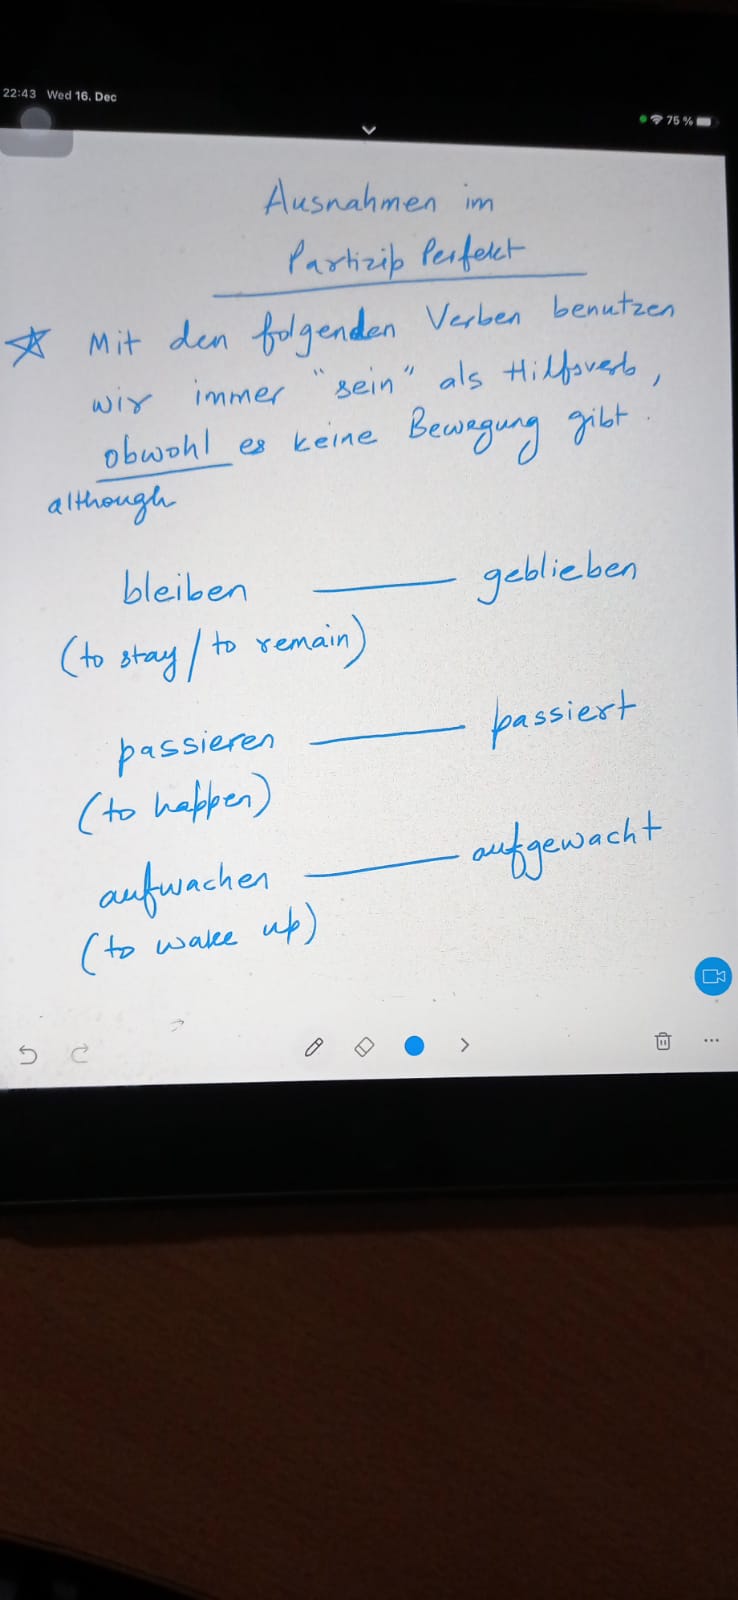 22:43 Wed 16. Dec
75 %
Ausnahmen im
Partizip Perfekt
Mit den folgenden Verben benutzen
wir immer "sein" als Hilfsverb,
obwohl es keine Bewegung gibt.
although
bleiben — geblieben
(to stay / to remain)
passieren — passiert
(to happen)
aufwachen — aufgewacht
(to wake up)